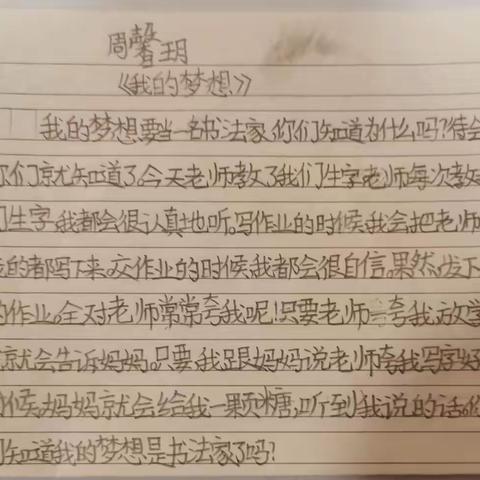 周馨玥
《我的梦想》
我的梦想要当一名书法家,你们知道为什么吗?待会
你们就知道了。今天老师教了我们生字,老师每次教
们生字,我都会很认真地听。写作业的时候,我会把老师
的都写下来。交作业的时候,我都会很自信。果然,发下
的作业。全对老师常常夸我呢!只要老师一夸我,放学
就会告诉妈妈。只要我跟妈妈说老师夸我写字好
时候,妈妈就会给我一颗糖,听到我说的话。你
们知道我的梦想是书法家了吗?